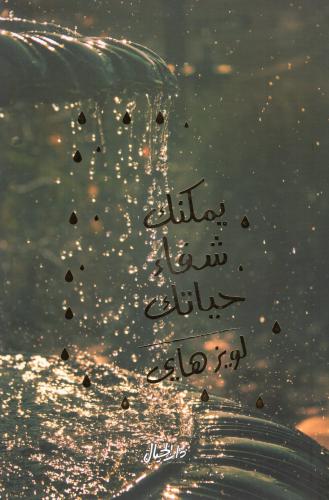 يمكنك
شفاء
حياتك
لويز هاي
دار الخيال